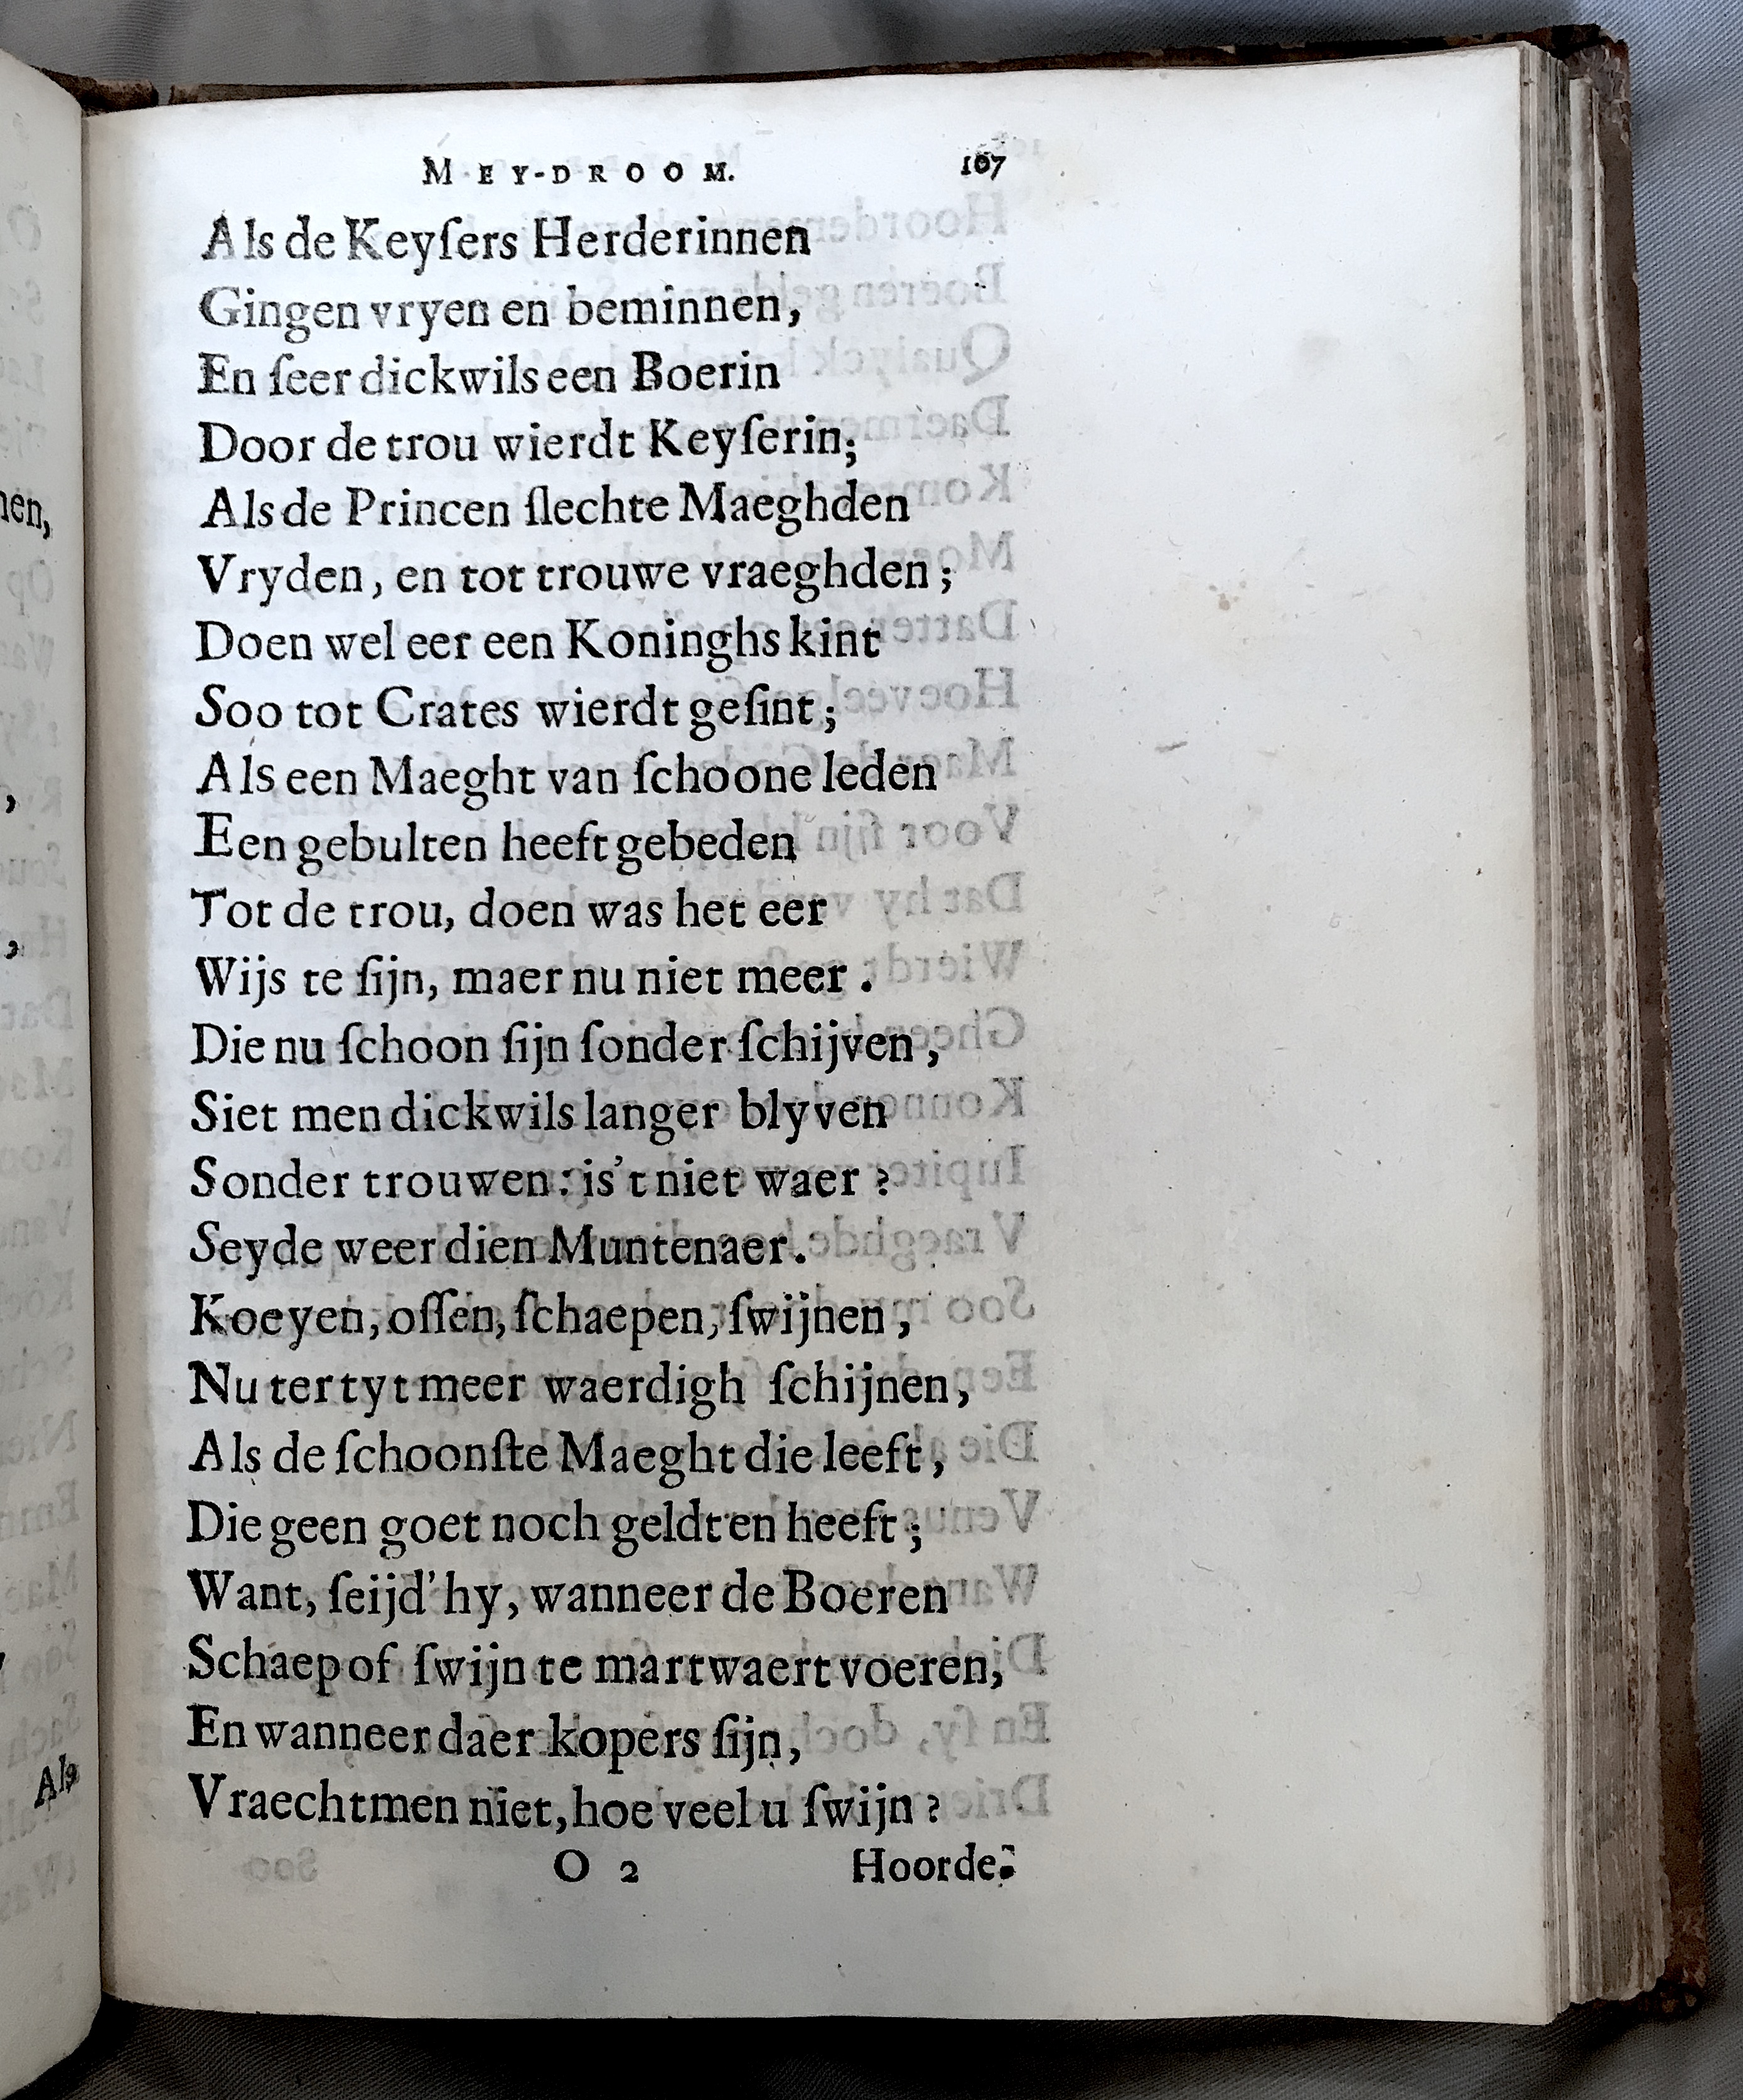 MEY-DROOM. 107
Als de Keyſers Herderinnen
Gingen vryen en beminnen,
En ſeer dickwils een Boerin
Door de trou wierdt Keyſerin;
Als de Princen ſlechte Maeghden
Vryden, en tot trouwe vraeghden;
Doen wel eer een Koninghs kint
Soo tot Crates wierdt geſint;
Als een Maeght van ſchoone leden
Een gebulten heeft gebeden
Tot de trou, doen was het eer
Wijs te ſijn, maer nu niet meer.
Die nu ſchoon ſijn ſonder ſchijven,
Siet men dickwils langer blyven
Sonder trouwen: is't niet waer?
Seyde weer dien Muntenaer.
Koeyen, oſſen, ſchaepen, ſwijnen,
Nu ter tyt meer waerdigh ſchijnen,
Als de ſchoonſte Maeght die leeft,
Die geen goet noch geldt en heeft;
Want, ſeijd' hy, wanneer de Boeren
Schaep of ſwijn te martwaert voeren,
En wanneer daer kopers ſijn,
Vraechtmen niet, hoe veel u ſwijn?
O 2 Hoorde-